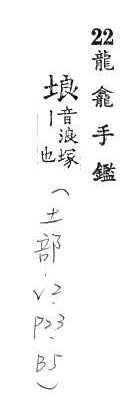 22龍龕手鑑
埌音浪塚丨也
(土部.V2.P23.B5)